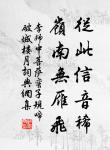 從此信音稀
嶺南無雁飛
李師中菩薩蠻子規啼
破城樓月詞典網集